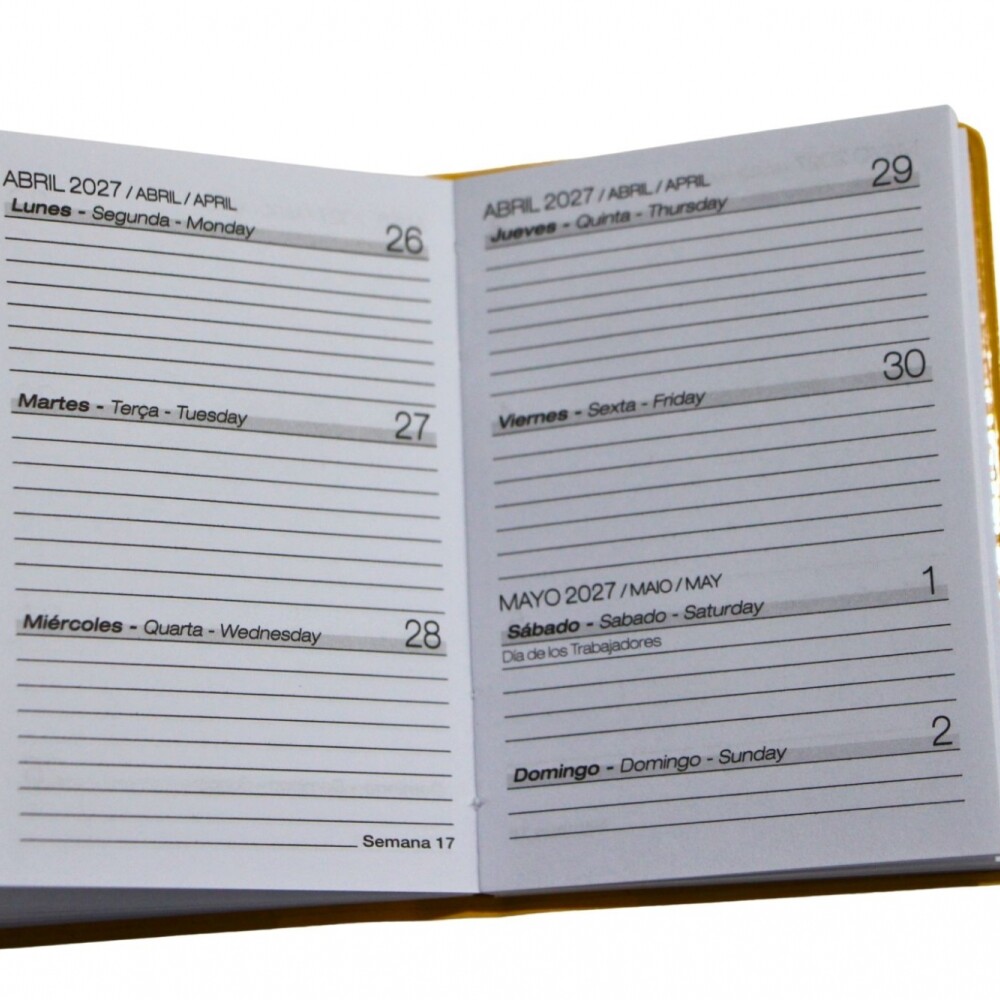 ABRIL 2027 / ABRIL / APRIL
Lunes - Segunda - Monday 26
Martes - Terça - Tuesday 27
Miércoles - Quarta - Wednesday 28
Semana 17
ABRIL 2027 / ABRIL / APRIL 29
Jueves - Quinta - Thursday
30
Viernes - Sexta - Friday
MAYO 2027 / MAIO / MAY 1
Sábado - Sabado - Saturday
Día de los Trabajadores
Domingo - Domingo - Sunday 2